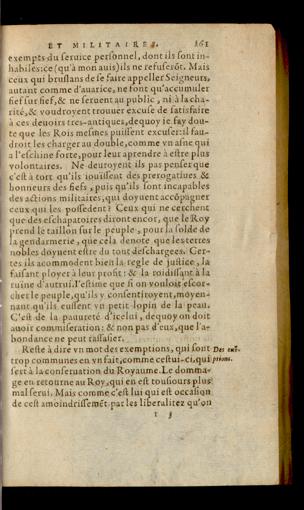 ET MILITAIRES. 161
exempts du seruice personnel, dont ils sont in-
habiles: ce (qu'à mon auis) ils ne refuserõt. Mais
ceux qui bruslans de se faire appeller Seigneurs,
autant comme d'auarice, ne font qu'accumuler
fief sur fief, & ne seruent au public, ni à la cha-
rité, & voudroyent trouuer excuse de satisfaire
à ces deuoirs tres-antiques, dequoy ie fay dou-
te que les Rois mesmes puissent excuser: il fau-
droit les charger au double, comme vn asne qui
a l'eschine forte, pour leur aprendre à estre plus
volontaires. Ne deuroyent ils pas penser que
c'est à tort qu'ils iouissent des prerogatiues &
honneurs des fiefs, puis qu'ils sont incapables
des actions militaires, qui doyuent accõpagner
ceux qui les possedent? Ceux qui ne cerchent
que des eschapatoires diront encor, que le Roy
prend le taillon sur le peuple, pour la solde de
la gendarmerie, que cela denote que les terres
nobles doyuent estre du tout deschargees. Cer-
tes ils accommodent bien la regle de iustice, la
faisant ployer à leur profit: & la roidissant à la
ruine d'autrui. I'estime que si on vouloit escor-
cher le peuple, qu'ils y consentiroyent, moyen-
nant qu'ils eussent vn petit lopin de la peau.
C'est de la pauureté d'icelui, dequoy on doit
auoir commiseration: & non pas d'eux, que l'a-
bondance ne peut rassasier.
Reste à dire vn mot des exemptions, qui sont
trop communes en vn fait, comme cestui-ci, qui
sert à la conseruation du Royaume. Le domma-
ge en retourne au Roy, qui en est tousiours plus
mal serui. Mais comme c'est lui qui est occasion
de cest amoindrissemẽt par les liberalitez qu'on
Des exẽ-
ptions.